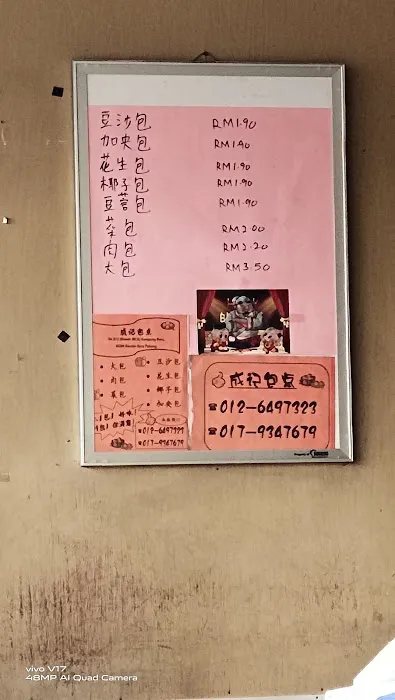 豆沙包 RM1.90
加央包 RM1.90
花生包 RM1.90
椰子包 RM1.90
豆蓉包 RM1.90
菜包 RM2.00
肉包 RM2.20
大包 RM3.50
成记包点
大包
肉包
菜包
豆沙包
花生包
椰子包
加央包
012-6497323
017-9347679
成记包点
012-6497323
017-9347679
vivo V17
48MP AI Quad Camera